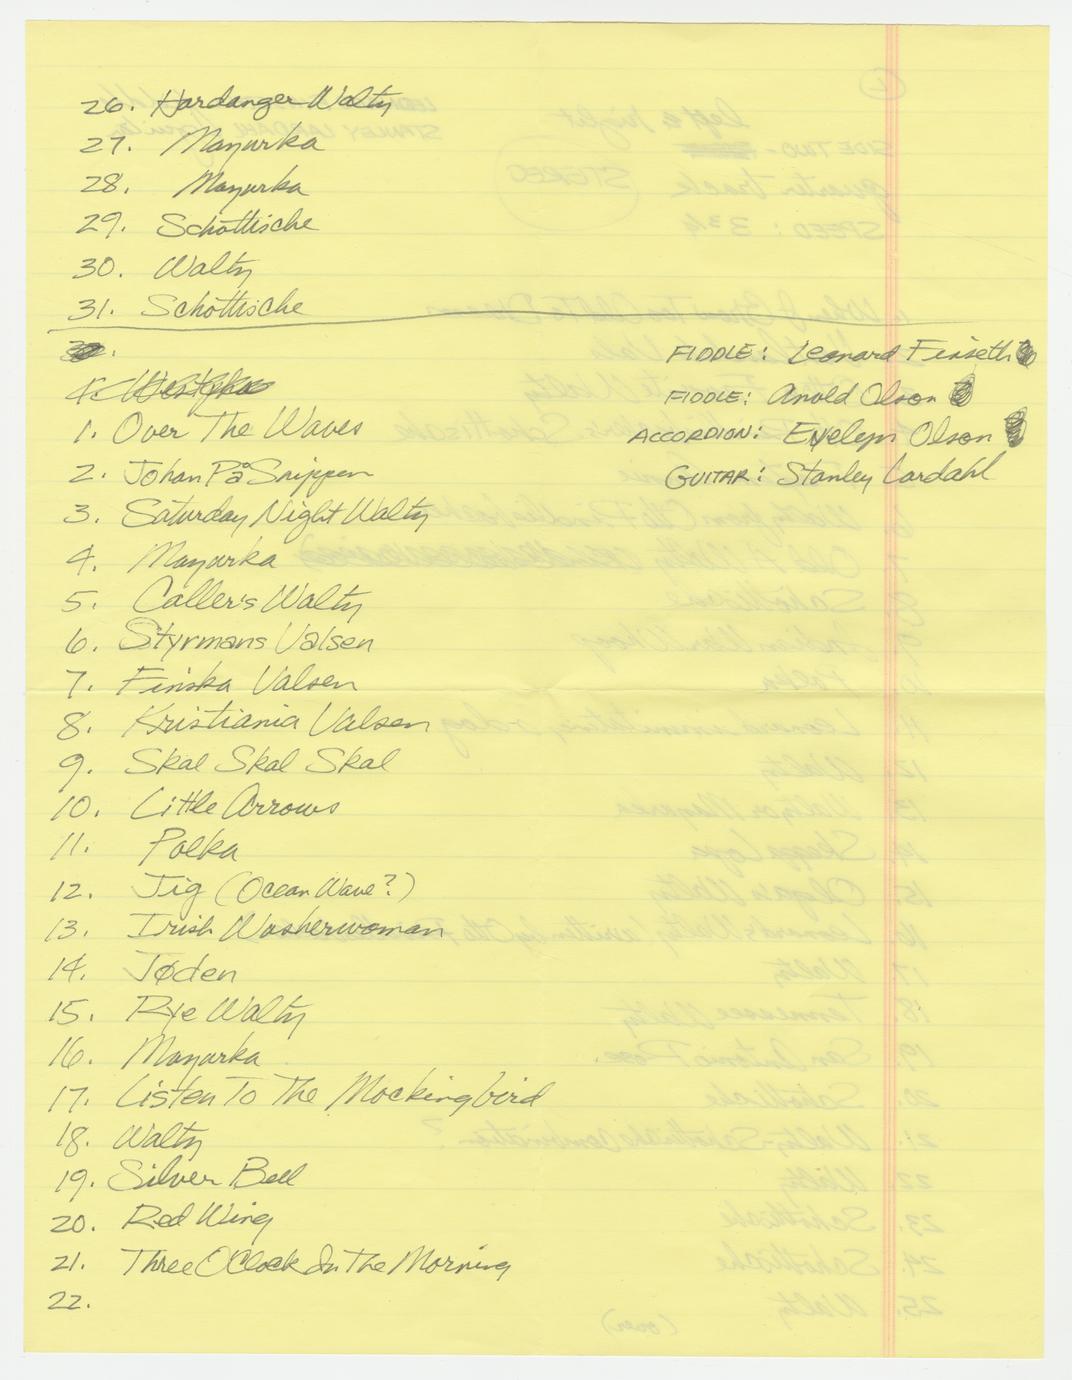 26. Hardanger Waltz
27. Mazurka
28. Mazurka
29. Schottische
30. Waltz
31. Schottische
FIDDLE: Leonard Finseth
FIDDLE: Arnold Olson
1. Over The Waves
ACCORDION: Evelyn Olson
2. Johan På Snippen
GUITAR: Stanley Lardahl
3. Saturday Night Waltz
4. Mazurka
5. Caller's Waltz
6. Styrmans Valsen
7. Finska Valsen
8. Kristiania Valsen
9. Skal Skal Skal
10. Little Arrows
11. Polka
12. Jig (Ocean Wave?)
13. Irish Washerwoman
14. Jøden
15. Rye Waltz
16. Mazurka
17. Listen To The Mockingbird
18. Waltz
19. Silver Bell
20. Red Wing
21. Three O'Clock In The Morning
22.